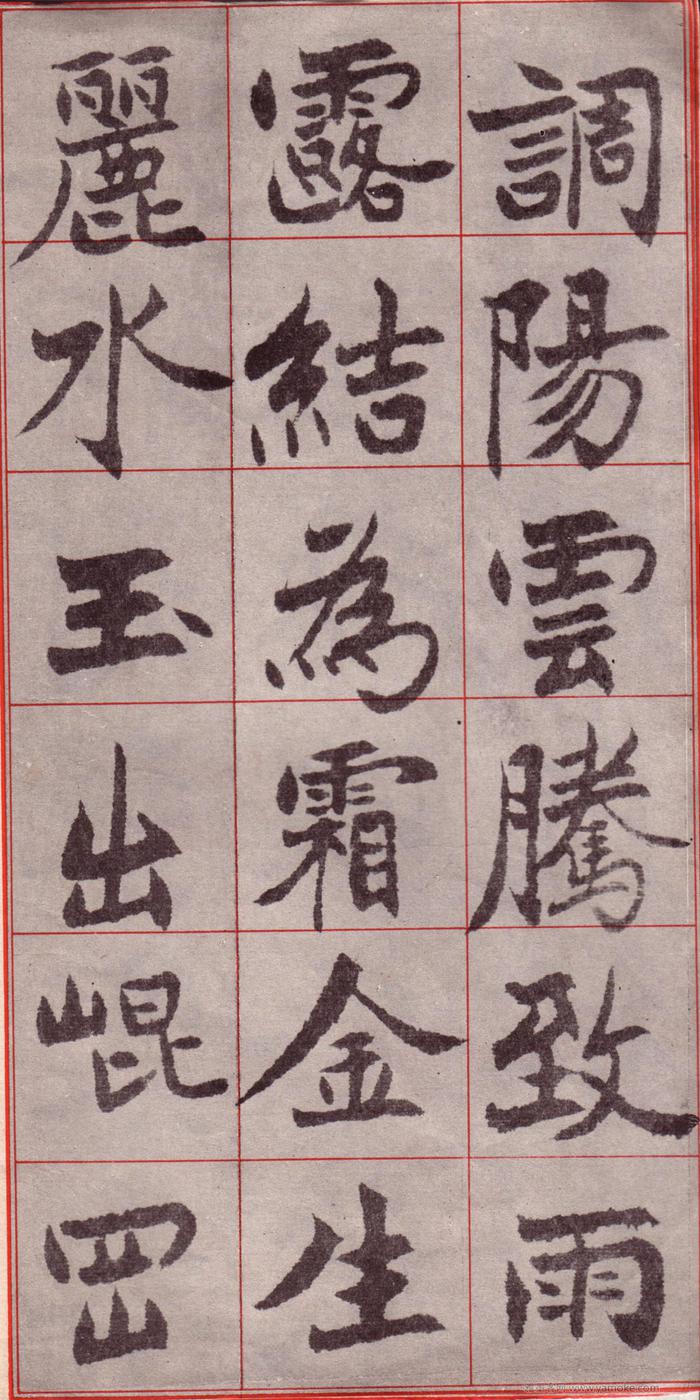 調陽雲騰致雨
露結為霜金生
麗水玉出崐罡